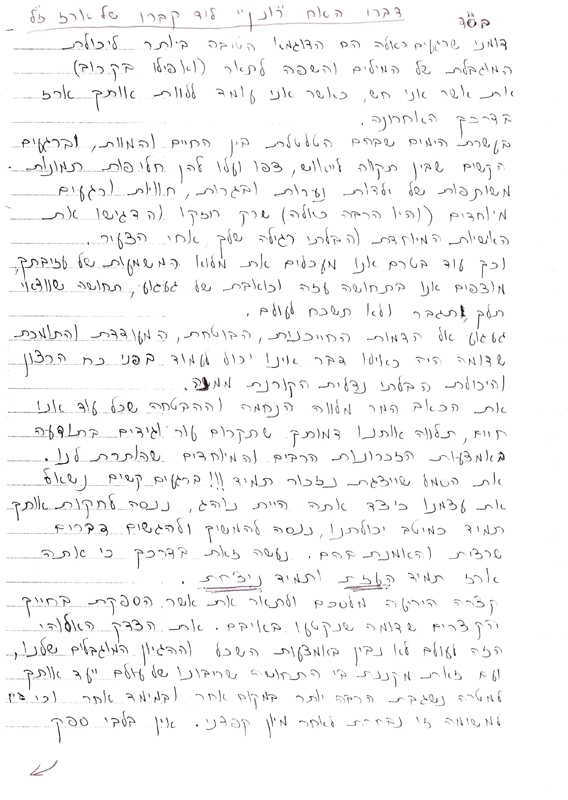 בס"ד
דברי האח "רונן" ליד קברו של ארז ז"ל
דומני שרגעים כאלה הם הדוגמא הטובה ביותר ליכולת
המוגבלת של המילים והשפה לתאר (ואפילו בקרוב)
את אשר אני חש, כאשר אני עומד ללוות אותך ארז
בדרכך האחרונה.
בעשרת הימים שבהם הטלטלת בין החיים והמוות, וברגעים
הקשים שבין תקווה לייאוש, צפו ועלו להן חליפות תמונות
משותפות של ילדות נערות ובגרות, חוויות ורגעים
מיוחדים (והיו הרבה כאלה) שרק חוזקו והדגישו את
האישיות המיוחדת והבלתי רגילה שלך אחי הצעיר.
וכך עוד בטרם אנו מעכלים את מלוא המשמעות של עזיבתך,
מוצפים אנו בתחושה עזה וכואבת של געגוע, תחושה שוודאי
תלך ותגבר ולא תשכח לעולם.
געגוע אל הדמות החייכנית, הבוטחת, המעודדת והתומכת
שדומה היה כאילו דבר אינו יכול לעמוד בפני כח הרצון
והיכולת הבלתי נדלית הקורנת ממנה.
את הכאב המר מלווה הנחמה וההבטחה שכל עוד אנו
חיים, תלווה אותנו דמותך שתקרום עור וגידים בתודעה
באמצעות הזכרונות הרבים והמיוחדים שהותרת לנו.
את הסמל שייצגת נזכור תמיד !!! ברגעים קשים נשאול
את עצמנו כיצד אתה היית נוהג, ננסה לחקות אותך
תמיד כמיטב יכולתנו, ננסה להמשיך ולהגשים דברים
שרצית והאמנת בהם. נעשה זאת בדרכך כי אתה
ארז תמיד העזת ותמיד ניצחת.
קצרה היריעה מלסכם ולתאר את אשר הספקת בחייך
הקצרים שדומה שנקטעו באיבם. את הצדק האלוהי
הזה לעולם לא נבין באמצעות השכל וההגיון המוגבלים שלנו,
ועם זאת מקננת בי התחושה שריבונו של עולם ייעד אותך
למטרה נשגבת הרבה יותר במקום אחר ובמימד אחר וכי
למשימה זו נבחרת לאחר מיון קפדני. אין בלבי ספק